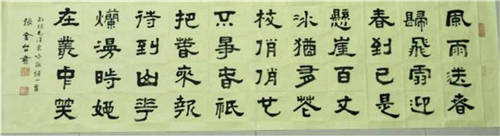 風雨送春
歸飛雪迎
春到已是
懸崖百丈
冰猶有花
枝俏俏也
不爭春祇
把春來報
待到山花
爛漫時她
在叢中笑
毛澤東詠梅詞一首
張金台書